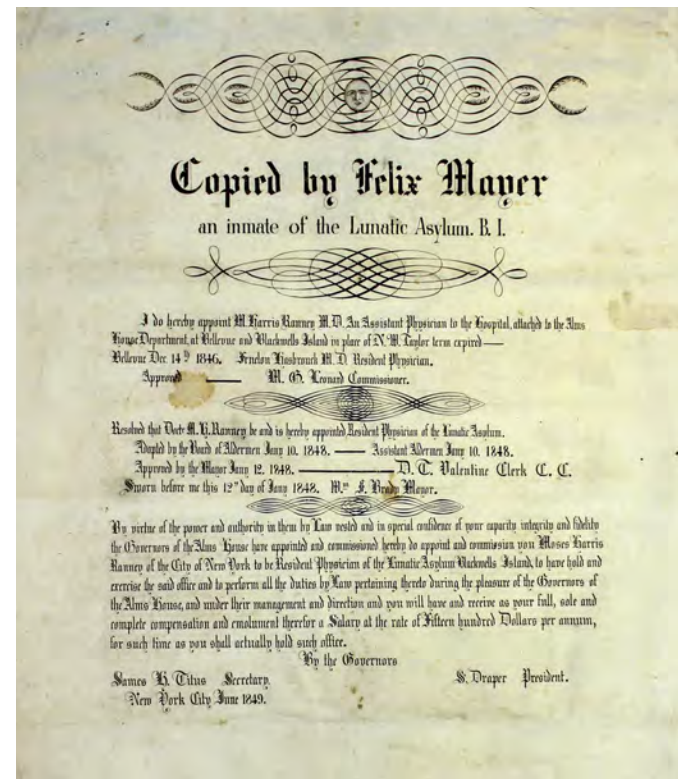 Copied by Felix Mayer
an inmate of the Lunatic Asylum. B. I.
I do hereby appoint M. Harris Ranney M.D. An Assistant Physician to the Hospital, attached to the Alms
House Department, at Bellevue and Blackwells Island in place of N. W. Taylor term expired —
Bellevue Dec. 14th 1846. Fenelon Hasbrouck M.D. Resident Physician.
Approved — M. G. Leonard Commissioner.
Resolved that Doctr M. H. Ranney be and is hereby appointed Resident Physician of the Lunatic Asylum.
Adopted by the Board of Aldermen Jany 10. 1848. — Assistant Aldermen Jany 10. 1848.
Approved by the Mayor Jany 12. 1848. — D. T. Valentine Clerk C. C.
Sworn before me this 12th day of Jany 1848. Wm F. Brady Mayor.
By virtue of the power and authority in them by Law vested and in special confidence of your capacity integrity and fidelity
the Governors of the Alms House have appointed and commissioned hereby do appoint and commission you Moses Harris
Ranney of the City of New York to be Resident Physician of the Lunatic Asylum Blackwells Island, to have hold and
exercise the said office and to perform all the duties by Law pertaining thereto during the pleasure of the Governors of
the Alms House, and under their management and direction and you will have and receive as your full, sole and
complete compensation and emolument therefor a Salary at the rate of Fifteen hundred Dollars per annum,
for such time as you shall actually hold such office.
By the Governors
James H. Titus Secretary. S. Draper President.
New York City June 1849.